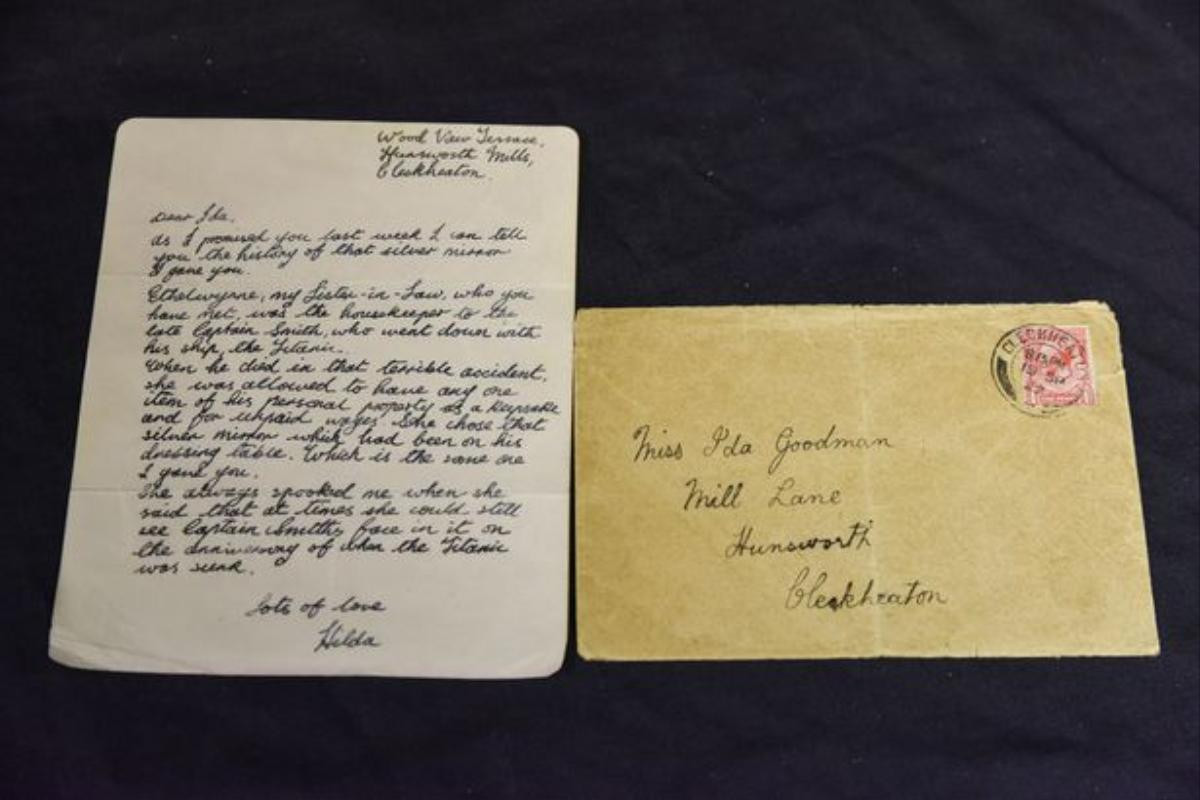 Wood View Terrace,
Hunsworth Mills,
Cleckheaton.
Dear Ida,
As I promised you last week I can tell
you the history of that silver mirror
I gave you.
Ethelwynne, my Sister-in-Law, who you
have met, was the housekeeper to the
late Captain Smith, who went down with
his ship, the Titanic.
When he died in that terrible accident,
she was allowed to have any one
item of his personal property as a keepsake
and for unpaid wages. She chose that
silver mirror which had been on his
dressing table. Which is the same one
I gave you.
She always spooked me when she
said that at times she could still
see Captain Smiths face in it on
the anniversary of when the Titanic
was sunk.
Lots of love
Hilda
CLECKHEATON
Miss Ida Goodman
Mill Lane
Hunsworth
Cleckheaton